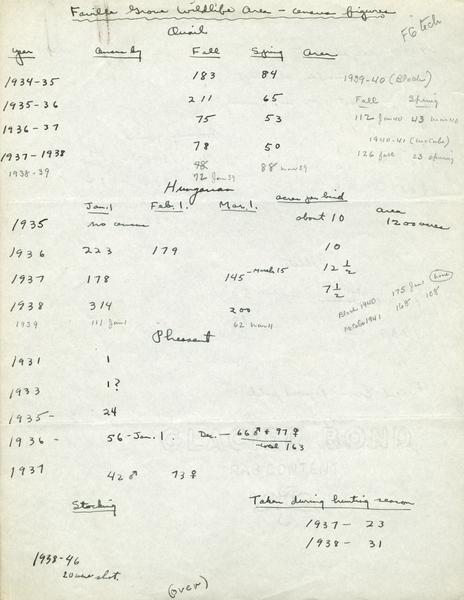 Faville Grove Wildlife Area - census figures
FG tech
Quail
Year Census by Fall Spring Area
1934-35 183 84 1939-40 (Black)
1935-36 211 65 Fall Spring
1936-37 75 53 112 Jan 40 43 Mar 40
1940-41 (McCabe)
1937-1938 78 50 126 fall 23 spring
1938-39 88 Mar 39
72 Jan 39
Hungarian
Jan. 1 Feb. 1. Mar. 1. acres per bird area
1935 no census about 10 1200 acres
1936 223 179 10
1937 178 145 - March 15 12 1/2
1938 314 200 7 1/2
1939 111 Jan 1 62 Mar 11
Black 1940 175 Jan 1
McCabe 1941 168 108
Pheasant
1931 1
1933 1?
1935- 24
1936 - 56 - Jan. 1. Dec. - 66 ♂ + 97 ♀
total 163
1937 42 ♂ 73 ♀
Stocking Taken during hunting season
1937 - 23
1938 - 31
1938-46
20 were shot.
(over)